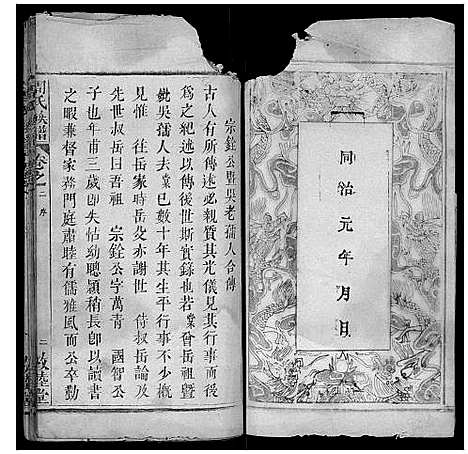 同治元年月日
宗銓公暨吳老孺人合傳
古人有所傳述必親質其光儀見其行事而後
為之紀述以傳後世斯實錄也若業曾岳祖暨
妣吳孺人去業已數十年其生平行事不少概
見惟往岳家時岳父亦謝世侍叔岳論及
先世叔岳曰吾祖宗銓公字萬青國智公
子也年甫三歲即失怙幼聰穎稍長即以讀書
之暇兼督家務門庭肅睦有儒雅風而公卒勤
周氏族譜 卷之一 序 二 敦睦堂